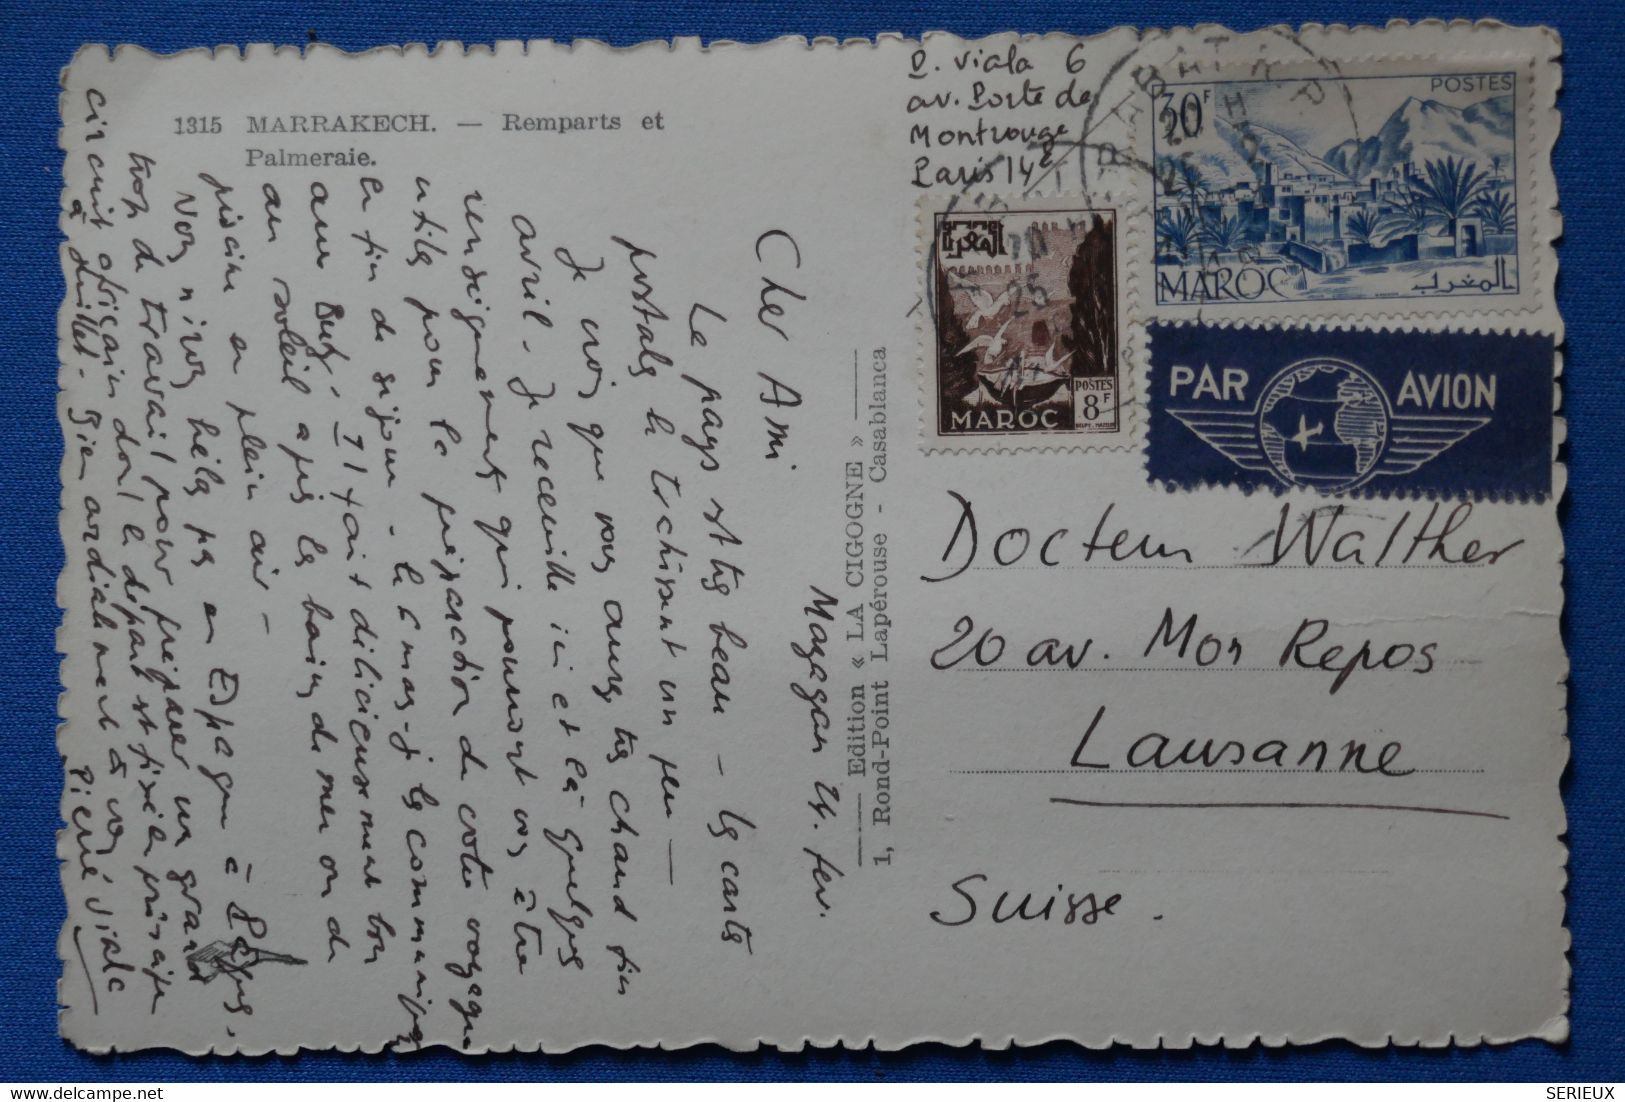 1315 MARRAKECH. — Remparts et
Palmeraie.
P. Viala 6
av. Porte de
Montrouge
Paris 14e
30F
POSTES
MAROC
المغرب
POSTES
8F
MAROC
PAR AVION
Edition « LA CIGOGNE »
1, Rond-Point Lapérouse - Casablanca
Docteur Walther
20 av. Mon Repos
Lausanne
Suisse.
Mazagan 24. fev.
Cher Ami
Le pays est très beau – les cartes
postales le trahissent un peu —
Je crois que vous aurez très chaud fin
avril. Je recueille ici et là quelques
renseignements qui pourront vous être
utiles pour la préparation de votre voyage
la fin de séjour - le cmas je les communique
aux Il fait délicieusement bon
au soleil après les bains de mer ou de
piscine en plein air —
Nous n'irons hélas pas en Espagne à Pâques,
trop de travail pour préparer un grand
circuit africain dont le départ est fixé en principe
à Juillet. Bien cordialement à vous
Pierre Viala
SERIEUX